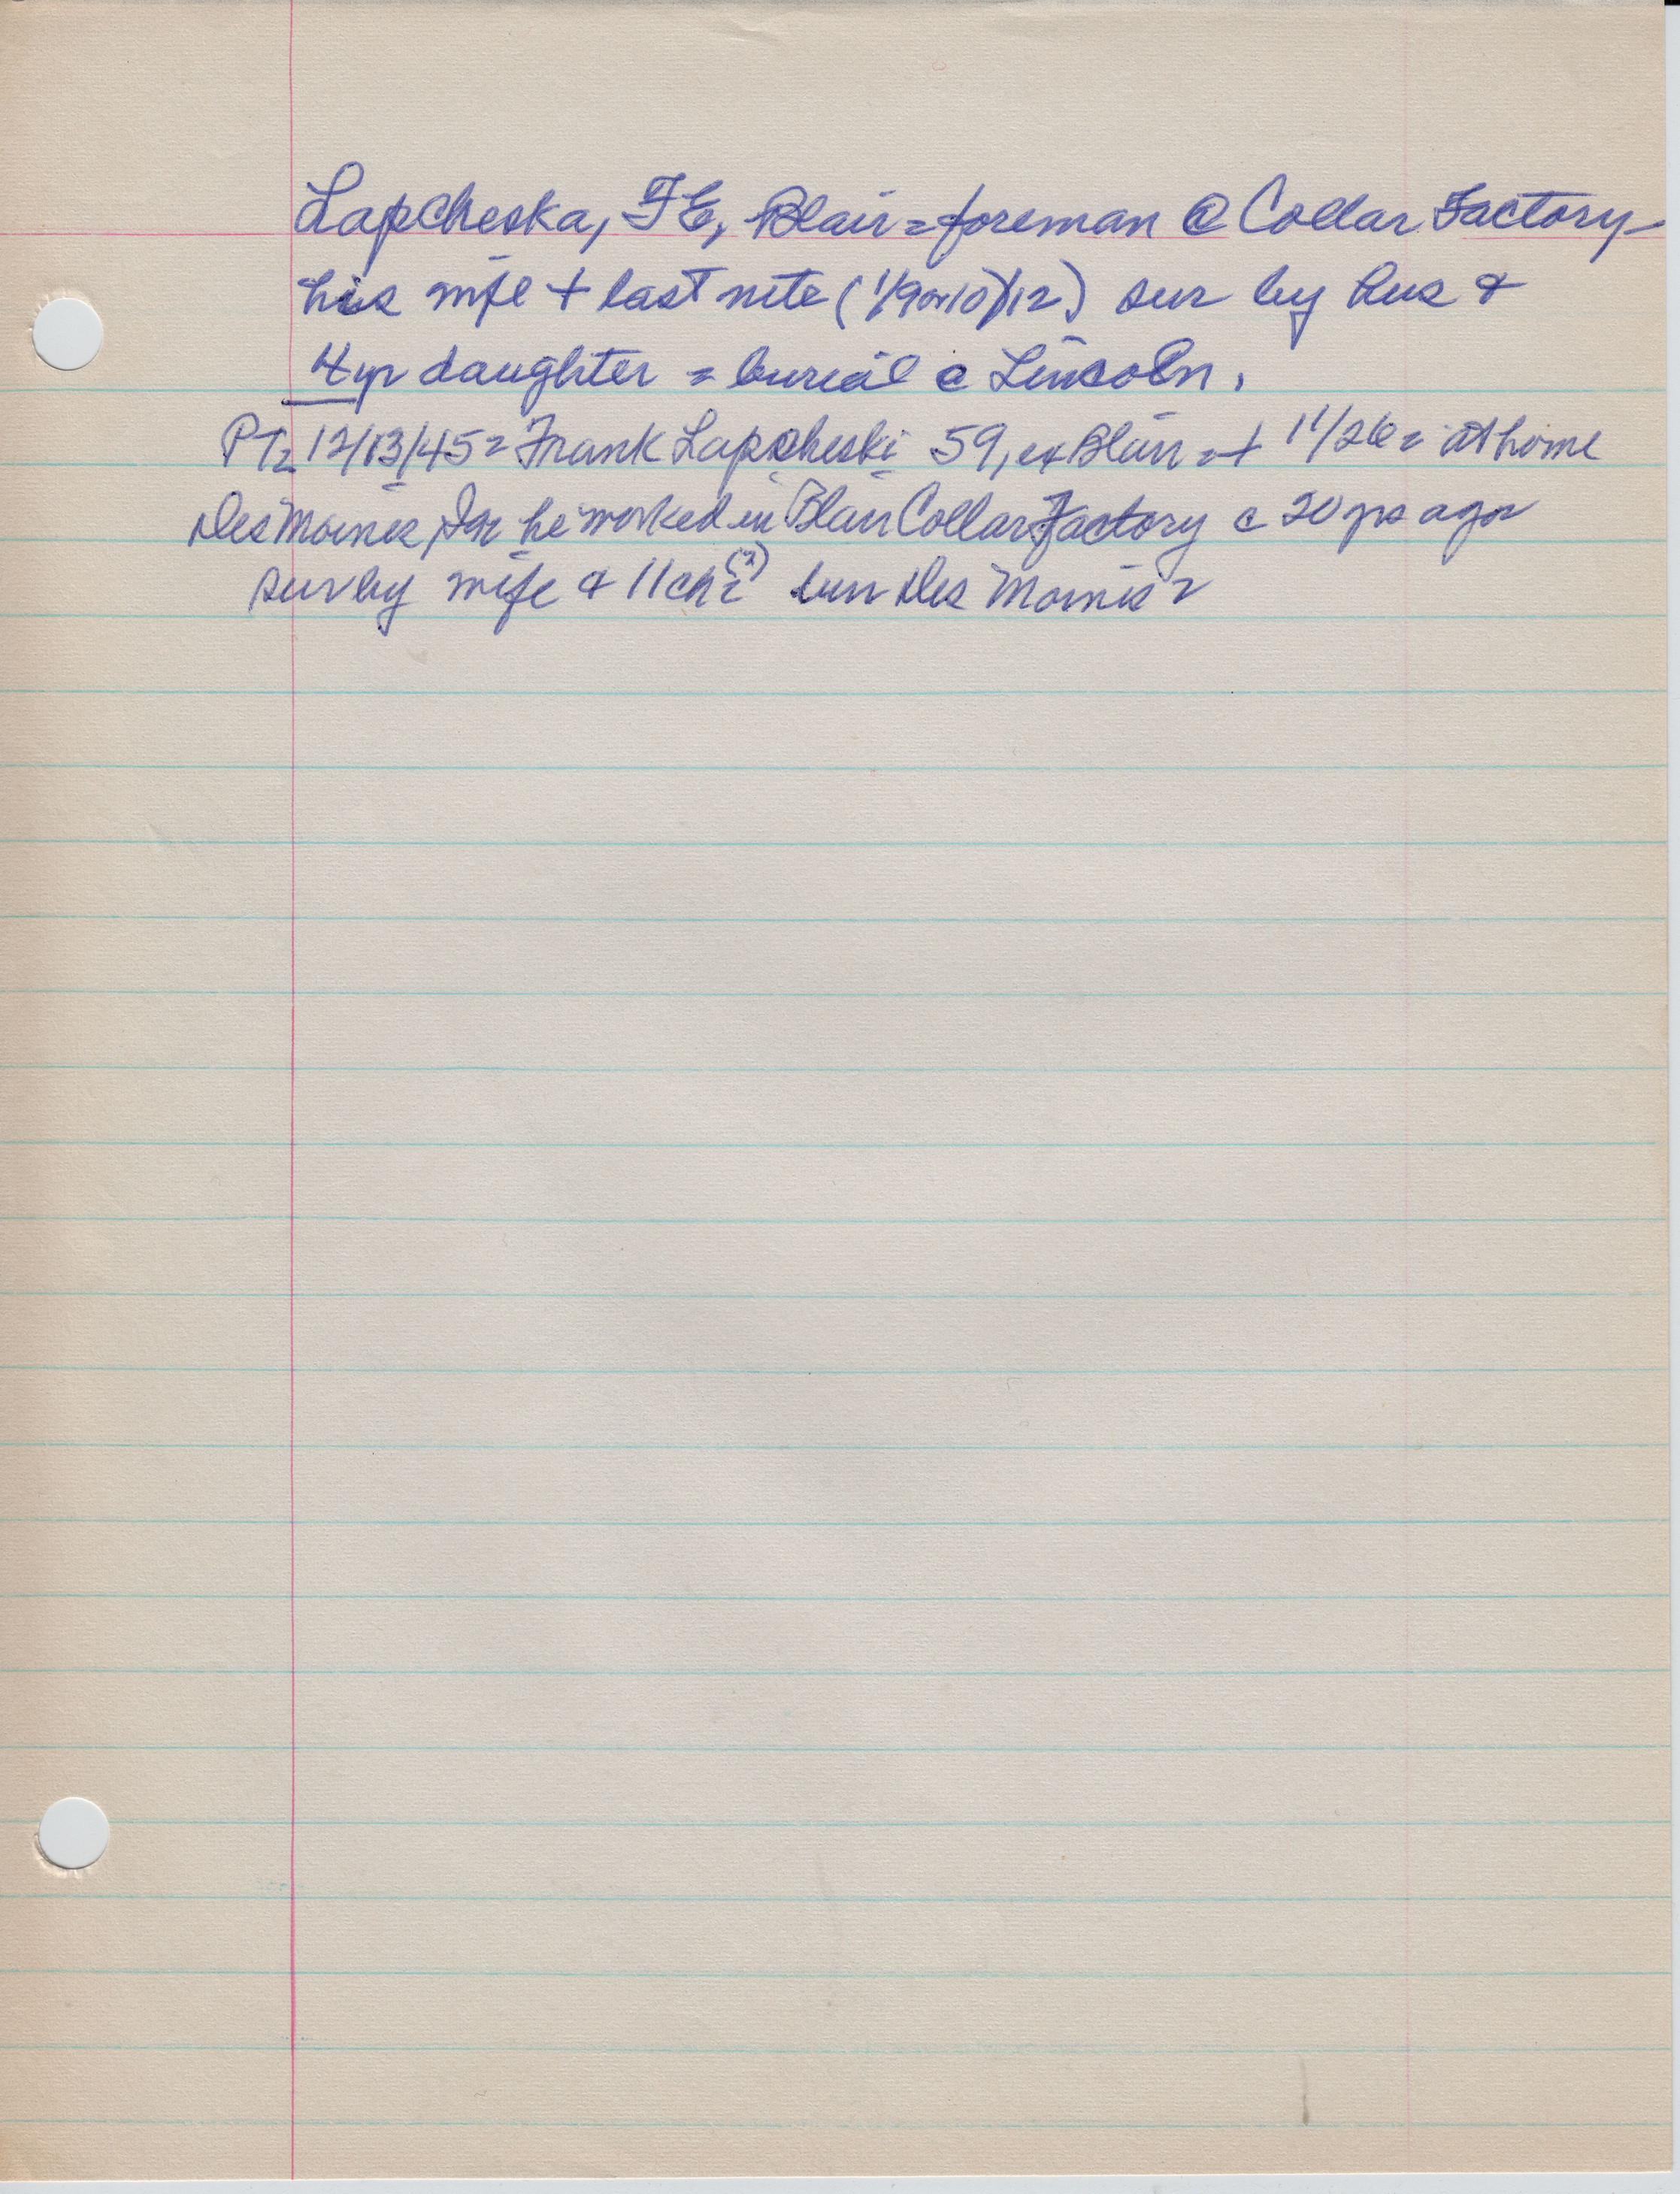 Lapcheska, F E, Blair = foreman @ Collar Factory
his wife + last nite (1/9or10)/12) sur by hus &
4 yr daughter = burial @ Lincoln.
PT= 12/13/45= Frank Lapcheski 59, ex Blair = + 11/26= at home
Des Moines, Ia he worked in Blair Collar Factory c 20 yrs ago
sur by wife & 11 ch = (?) bur Des Moines =